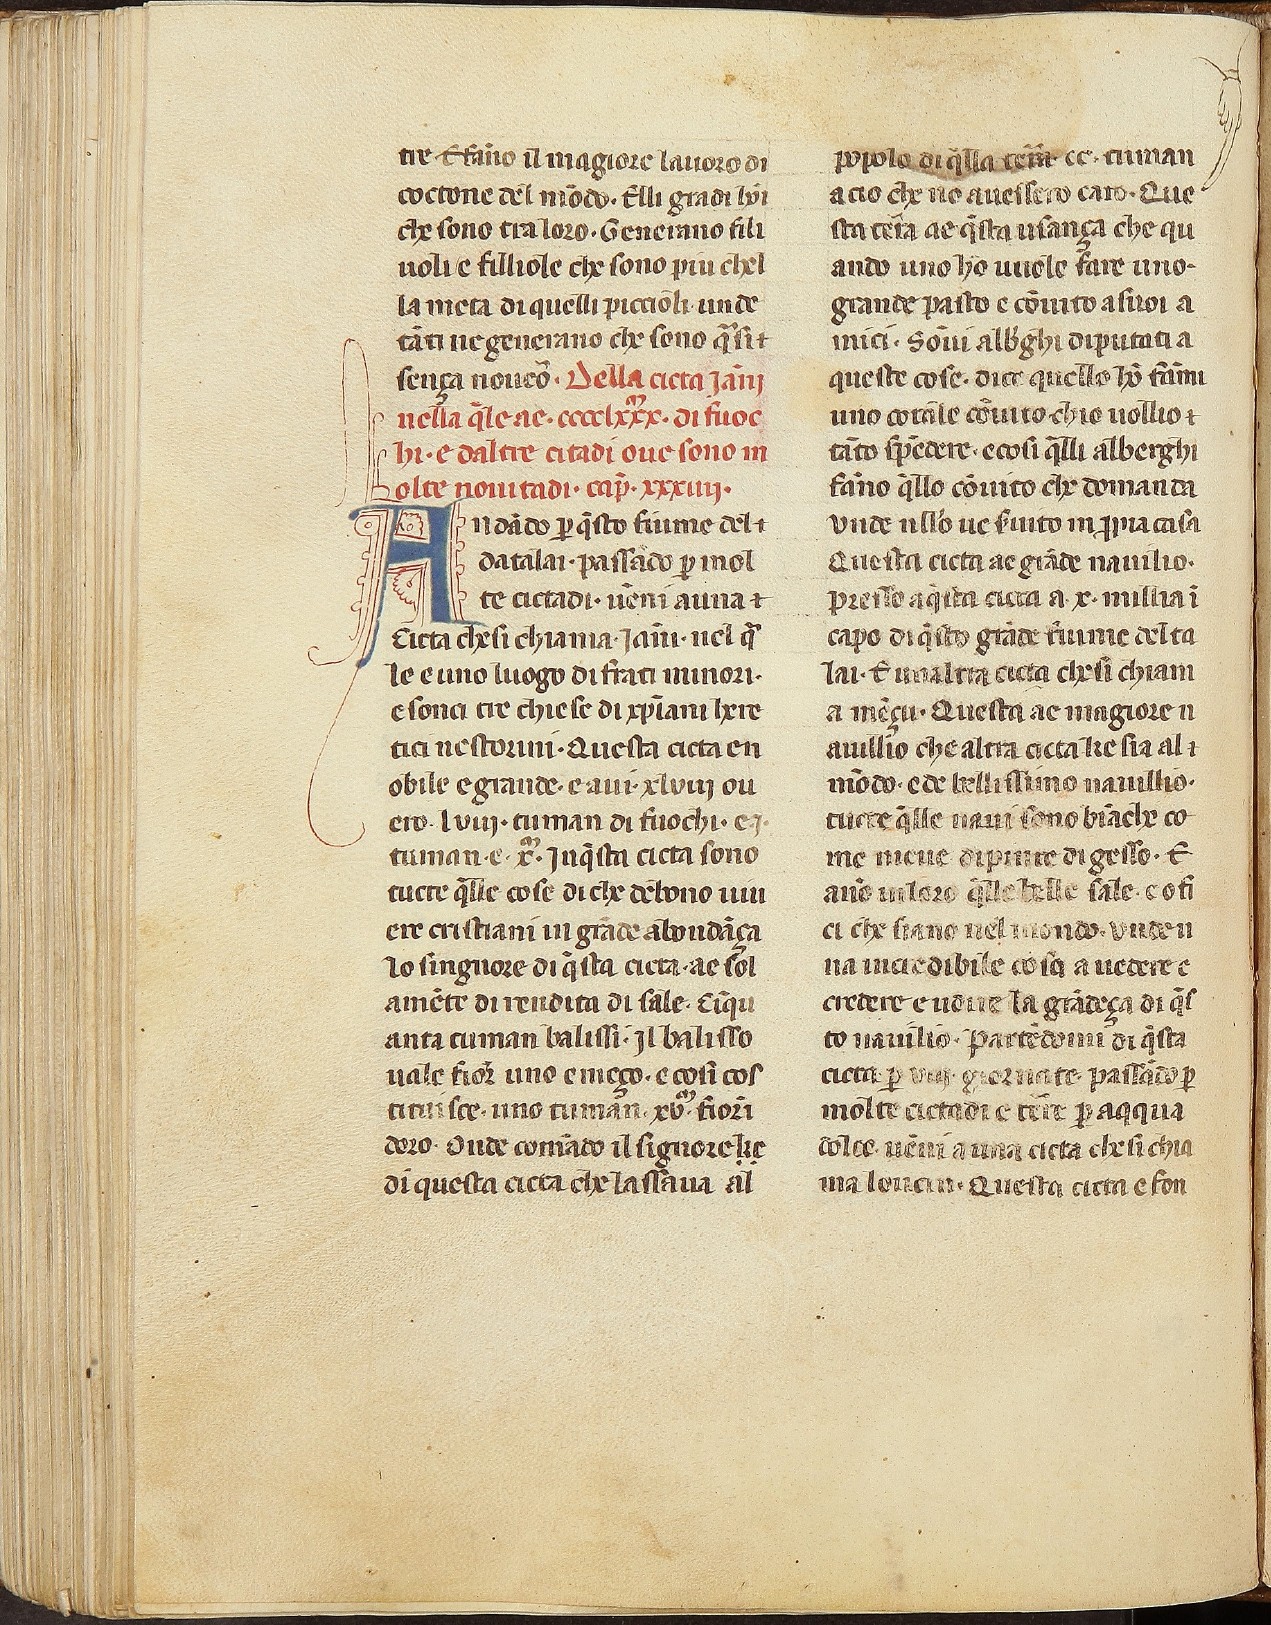 tre. E fãno il magiore lauoro di
coctone del mõdo. Elli grãdi hõi
che sono tra loro. Generano fili
uoli e filliole che sono piu chel
la meta di quelli piccioli. unde
tãti ne generano che sono q̃si ɫ
sença noueõ. Della cicta Jãnj
nella q̃le ae. cccclxxx. di fuoc
hi. e daltre citadi oue sono m
olte nouitadi. cap̃. xxxiiij.
Andãdo ꝑ q̃sto fiume del ɫ
datalai. passãdo ꝑ mol
te cictadi. uẽni a una ɫ
Cicta che si chiama. Jãni. nel q̃
le e uno luogo di frati minori.
e sonci tre chiese di xp̃iani here
tici nestorini. Questa cicta e n
obile e grande. e aui. xlviij ou
ero. lviij. tuman di fuochi.
tuman. e. x. Jn q̃sta cicta sono
tucte q̃lle cose di che debono uiu
ere cristiani in grãde abundãça
Lo singnore di q̃sta cicta. ae sol
amẽte di rendita di sale. Cĩqu
anta tuman balissi. Jl balisso
uale fior̃ uno e meço. e cosi cos
tituisce. uno tumãn. xv. fiorĩ
doro. Onde comãdo il signore
di questa cicta che lassaua al
popolo di q̃lla tera cc. tuman
acio che no auessero caro. Que
sta tera ae q̃sta usança che qu
ando uno ho uuele fare uno
grande pasto e cõuito a suoi a
mici. Soui alb̃ghi diputati a
queste cose. dice quello hõ fãmi
uno cotale cõuito chio uollio ɫ
tãto sp̃edere. e cosi q̃lli alberghi
fãno q̃llo cõuito che domanda
Vnde ue in ꝓpia casa
Questa cicta ae grãde nauilio.
presso a q̃sta cicta a. x. millia ĩ
capo di q̃sto grãde fiume del ta
lai. E unaltra cicta che si chiam
a mẽçu. Questa ae magiore n
auillio che altra cicta ke sia al ɫ
mõdo. e de bellissimo nauillio.
tucte q̃lle naui sono biãche co
me nieue dipinte di gesso. E
ano in loro q̃lle belle sale. e ofi
ci che siano nel mondo. Vnde u
na incredibile cosa a uedere e
credere e udire la grãdeça di q̃s
to nauilio. Partẽdomi di q̃sta
cicta ꝑ viij. giornate. passãdo ꝑ
molte cictadi e tere ꝑ aqqua
dolce. uẽni a una cicta che si chia
ma lencin. Questa cicta e son